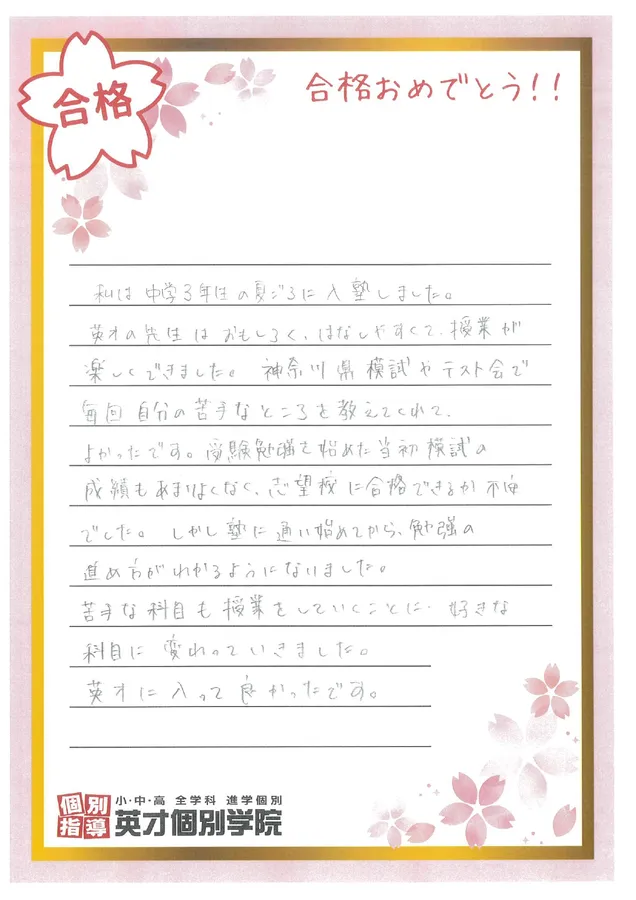 合格
合格おめでとう!!
私は中学3年生の夏ごろに入塾しました。
英才の先生はおもしろく、はなしやすくて、授業が
楽しくできました。神奈川県模試やテスト会で
毎回自分の苦手なところを教えてくれて、
よかったです。受験勉強を始めた当初模試の
成績もあまりよくなく、志望校に合格できるか不安
でした。しかし塾に通い始めてから、勉強の
進め方がわかるようになりました。
苦手な科目も授業をしていくごとに、好きな
科目に変わっていきました。
英才に入って良かったです。
個別指導
小・中・高 全学科 進学個別
英才個別学院